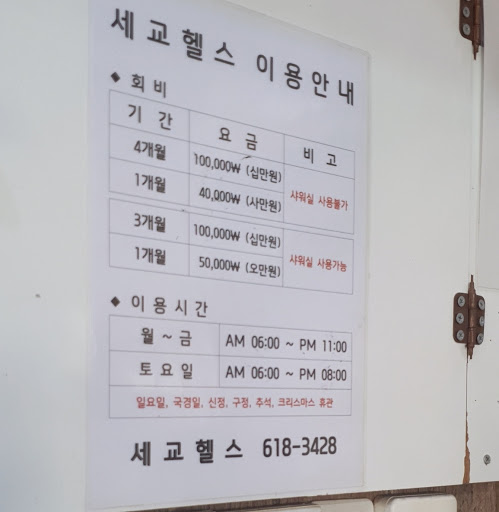 세교헬스 이용안내
◆ 회비
기 간 요 금 비 고
4개월 100,000₩ (십만원) 샤워실 사용불가
1개월 40,000₩ (사만원)
3개월 100,000₩ (십만원) 샤워실 사용가능
1개월 50,000₩ (오만원)
◆ 이용시간
월 ~ 금 AM 06:00 ~ PM 11:00
토요일 AM 06:00 ~ PM 08:00
일요일, 국경일, 신정, 구정, 추석, 크리스마스 휴관
세교헬스 618-3428